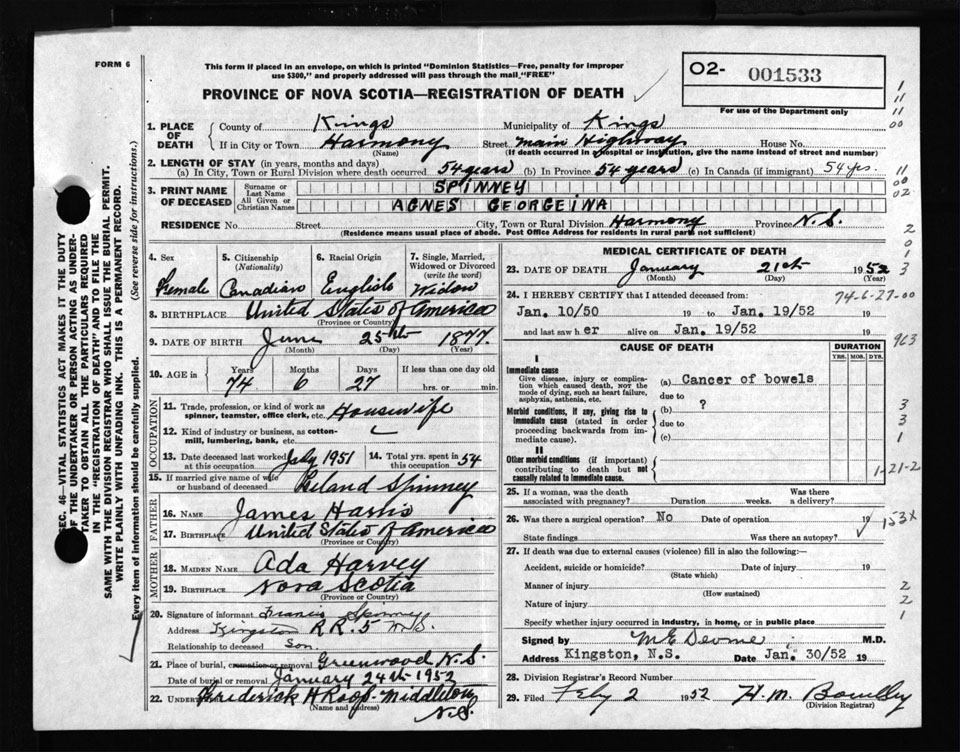 FORM 6
This form if placed in an envelope, on which is printed "Dominion Statistics—Free, penalty for improper
use $300," and properly addressed will pass through the mail "FREE"
PROVINCE OF NOVA SCOTIA—REGISTRATION OF DEATH
O2- 001533
For use of the Department only
1. PLACE OF DEATH
County of Kings Municipality of Kings
If in City or Town Harmony Street Main Highway House No.
(Name) (If death occurred in a hospital or institution, give the name instead of street and number)
2. LENGTH OF STAY (in years, months and days)
(a) In City, Town or Rural Division where death occurred 54 years (b) In Province 54 years (c) In Canada (if immigrant) 54 yrs.
3. PRINT NAME OF DECEASED
Surname or Last Name SPINNEY
All Given or Christian Names AGNES GEORGEINA
RESIDENCE No. Street City, Town or Rural Division Harmony Province N.S.
(Residence means usual place of abode. Post Office Address for residents in rural parts not sufficient)
4. Sex Female
5. Citizenship (Nationality) Canadian
6. Racial Origin English
7. Single, Married, Widowed or Divorced (write the word) Widow
8. BIRTHPLACE United States of America
(Province or Country)
9. DATE OF BIRTH June 25th 1877.
(Month) (Day) (Year)
10. AGE in Years 74 Months 6 Days 27 If less than one day old
hrs. or min.
OCCUPATION
11. Trade, profession, or kind of work as spinner, teamster, office clerk, etc. Housewife
12. Kind of industry or business, as cotton-mill, lumbering, bank, etc.
13. Date deceased last worked at this occupation July 1951 14. Total yrs. spent in this occupation 54
15. If married give name of wife or husband of deceased Leland Spinney
FATHER
16. NAME James Harris
17. BIRTHPLACE United States of America
(Province or Country)
MOTHER
18. MAIDEN NAME Ada Harvey
19. BIRTHPLACE Nova Scotia
(Province or Country)
20. Signature of informant Francis Spinney
Address Kingston RR.5 N.S.
Relationship to deceased Son.
21. Place of burial, cremation or removal Greenwood N.S.
Date of burial or removal January 24th 1952
22. UNDERTAKER Frederick H Roop. Middleton
(Name and address) N.S.
MEDICAL CERTIFICATE OF DEATH
23. DATE OF DEATH January 21st 1952
(Month) (Day) (Year)
24. I HEREBY CERTIFY that I attended deceased from:
74-6-27-00
Jan. 10/50 19 to Jan. 19/52 19
and last saw h er alive on Jan. 19/52 19
CAUSE OF DEATH DURATION
YRS. MOS. DYS.
I
Immediate cause
Give disease, injury or complication which caused death, not the mode of dying, such as heart failure, asphyxia, asthenia, etc.
(a) Cancer of bowels
due to
Morbid conditions, if any, giving rise to immediate cause (stated in order proceeding backwards from immediate cause).
(b) ?
due to
(c)
II
Other morbid conditions (if important) contributing to death but not causally related to immediate cause.
25. If a woman, was the death associated with pregnancy? Duration weeks. Was there a delivery?
26. Was there a surgical operation? No Date of operation 19
State findings Was there an autopsy?
27. If death was due to external causes (violence) fill in also the following:—
Accident, suicide or homicide? Date of injury 19
(State which)
Manner of injury
(How sustained)
Nature of injury
Specify whether injury occurred in industry, in home, or in public place
Signed by M E Devine M.D.
Address Kingston, N.S. Date Jan. 30/52 19
28. Division Registrar's Record Number
29. Filed Feby 2 1952 H.M.
(Division Registrar)
SEC. 46—VITAL STATISTICS ACT MAKES IT THE DUTY
OF THE UNDERTAKER OR PERSON ACTING AS UNDER-
TAKER TO OBTAIN ALL THE PARTICULARS REQUIRED
IN THE "REGISTRATION OF DEATH" AND TO FILE THE
SAME WITH THE DIVISION REGISTRAR WHO SHALL ISSUE THE BURIAL PERMIT.
WRITE PLAINLY WITH UNFADING INK. THIS IS A PERMANENT RECORD.
Every item of information should be carefully supplied. (See reverse side for instructions.)
1
11
11
00
11
00
02
2
0
1
3
963
3
3
1
1-21-2
153X
2
2
1